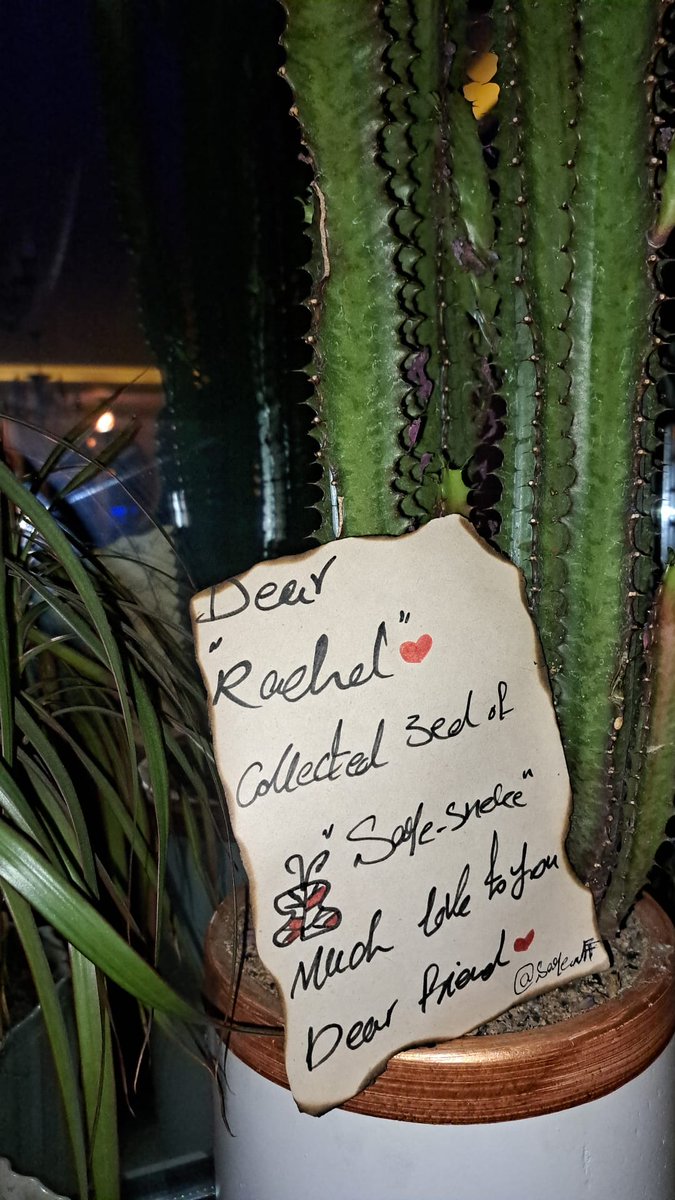 Dear
"Rachel" ❤
Collected 3ed of
"Sage-snake"
Much love to you
Dear friend ❤